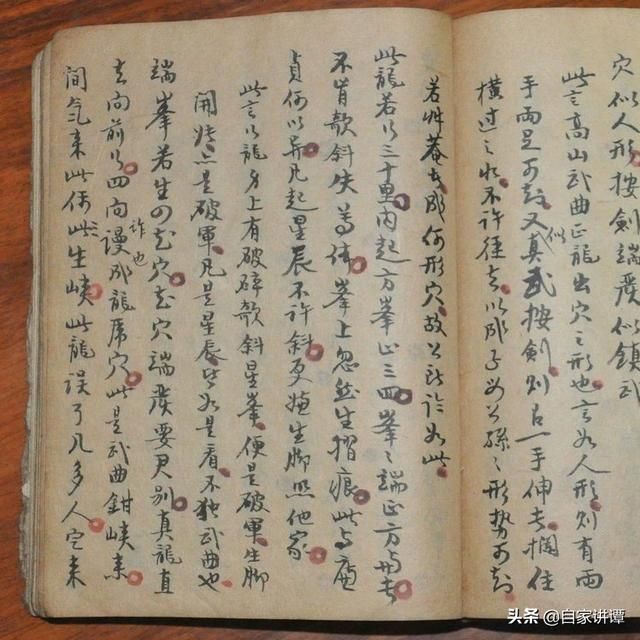 穴似人形按劍端嚴似鎮武
此言高山武曲正龍出穴之形也言如人形則有兩
手兩足可知又真似武按劍則占一手伸去攔住
橫過之水不許徑去以成子公孫之形勢可知
若去成何形穴故如此
此龍若行三十里內起方峯止三四峯〻端正方与去
不肯欹斜失尊体峯上忽然生摺痕此与廉
貞何以異凡起星辰不許斜更嫌生脚照他家
此言以龍身上有破碎欹斜星峯便是破軍生脚
開是破軍凡是星辰皆如是看不独武曲也
端峯若生四花穴花穴端嚴要君別真龍直
去向前行四向謾成龍虎穴詐也此是武曲鉗峽来
間气来此生峽此龍誤了几多人定来
头条 @自家讲谭